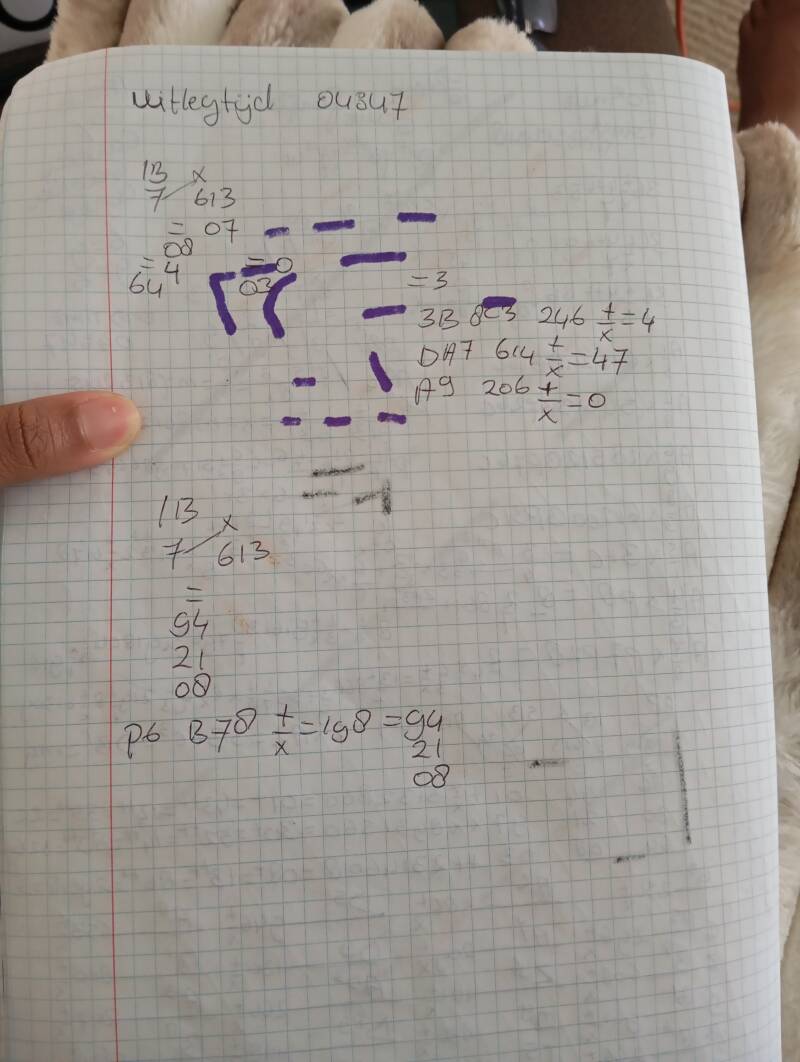 uitlegtijd 04347
1B x
7 613
= 07
08
= 4 = 0
64 03
= 3
3B 8C3 246 +/x = 4
DA7 614 +/x = 47
A9 206 +/x = 0
1B x
7 613
=
94
21
08
P6 B78 +/x = 198 = 94
21
08